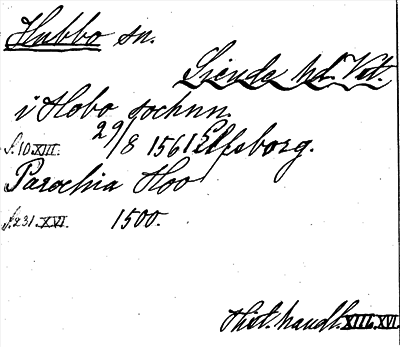 Hubbo sn.
Siende hd. Vst.
i Hobo sochnn.
S. 10 XIII. 29/8 1561 Elfsborg.
Parochia Hoo
S. 231. XVI. 1500.
Hist. handl. XIII, XVI.